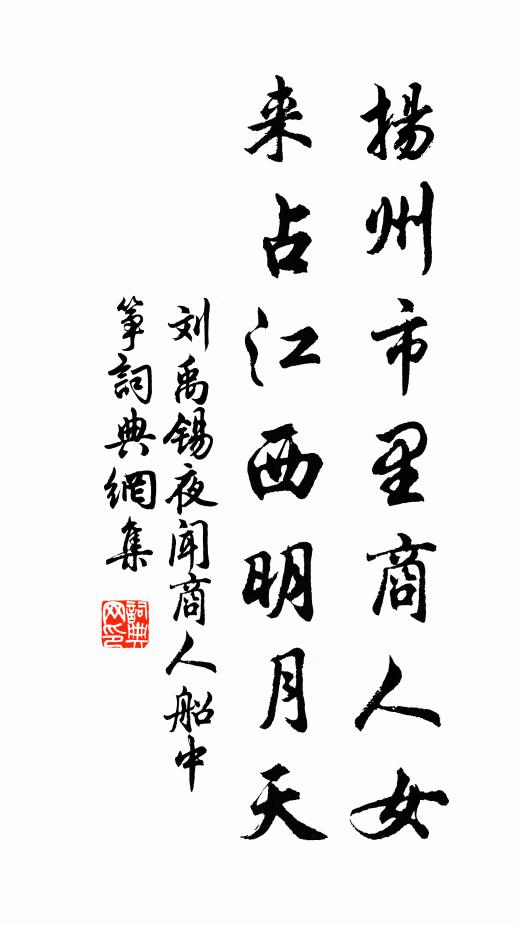 揚州市里商人女
来占江西明月天
刘禹锡夜闻商人船中
筝詞典網集
詞典网印